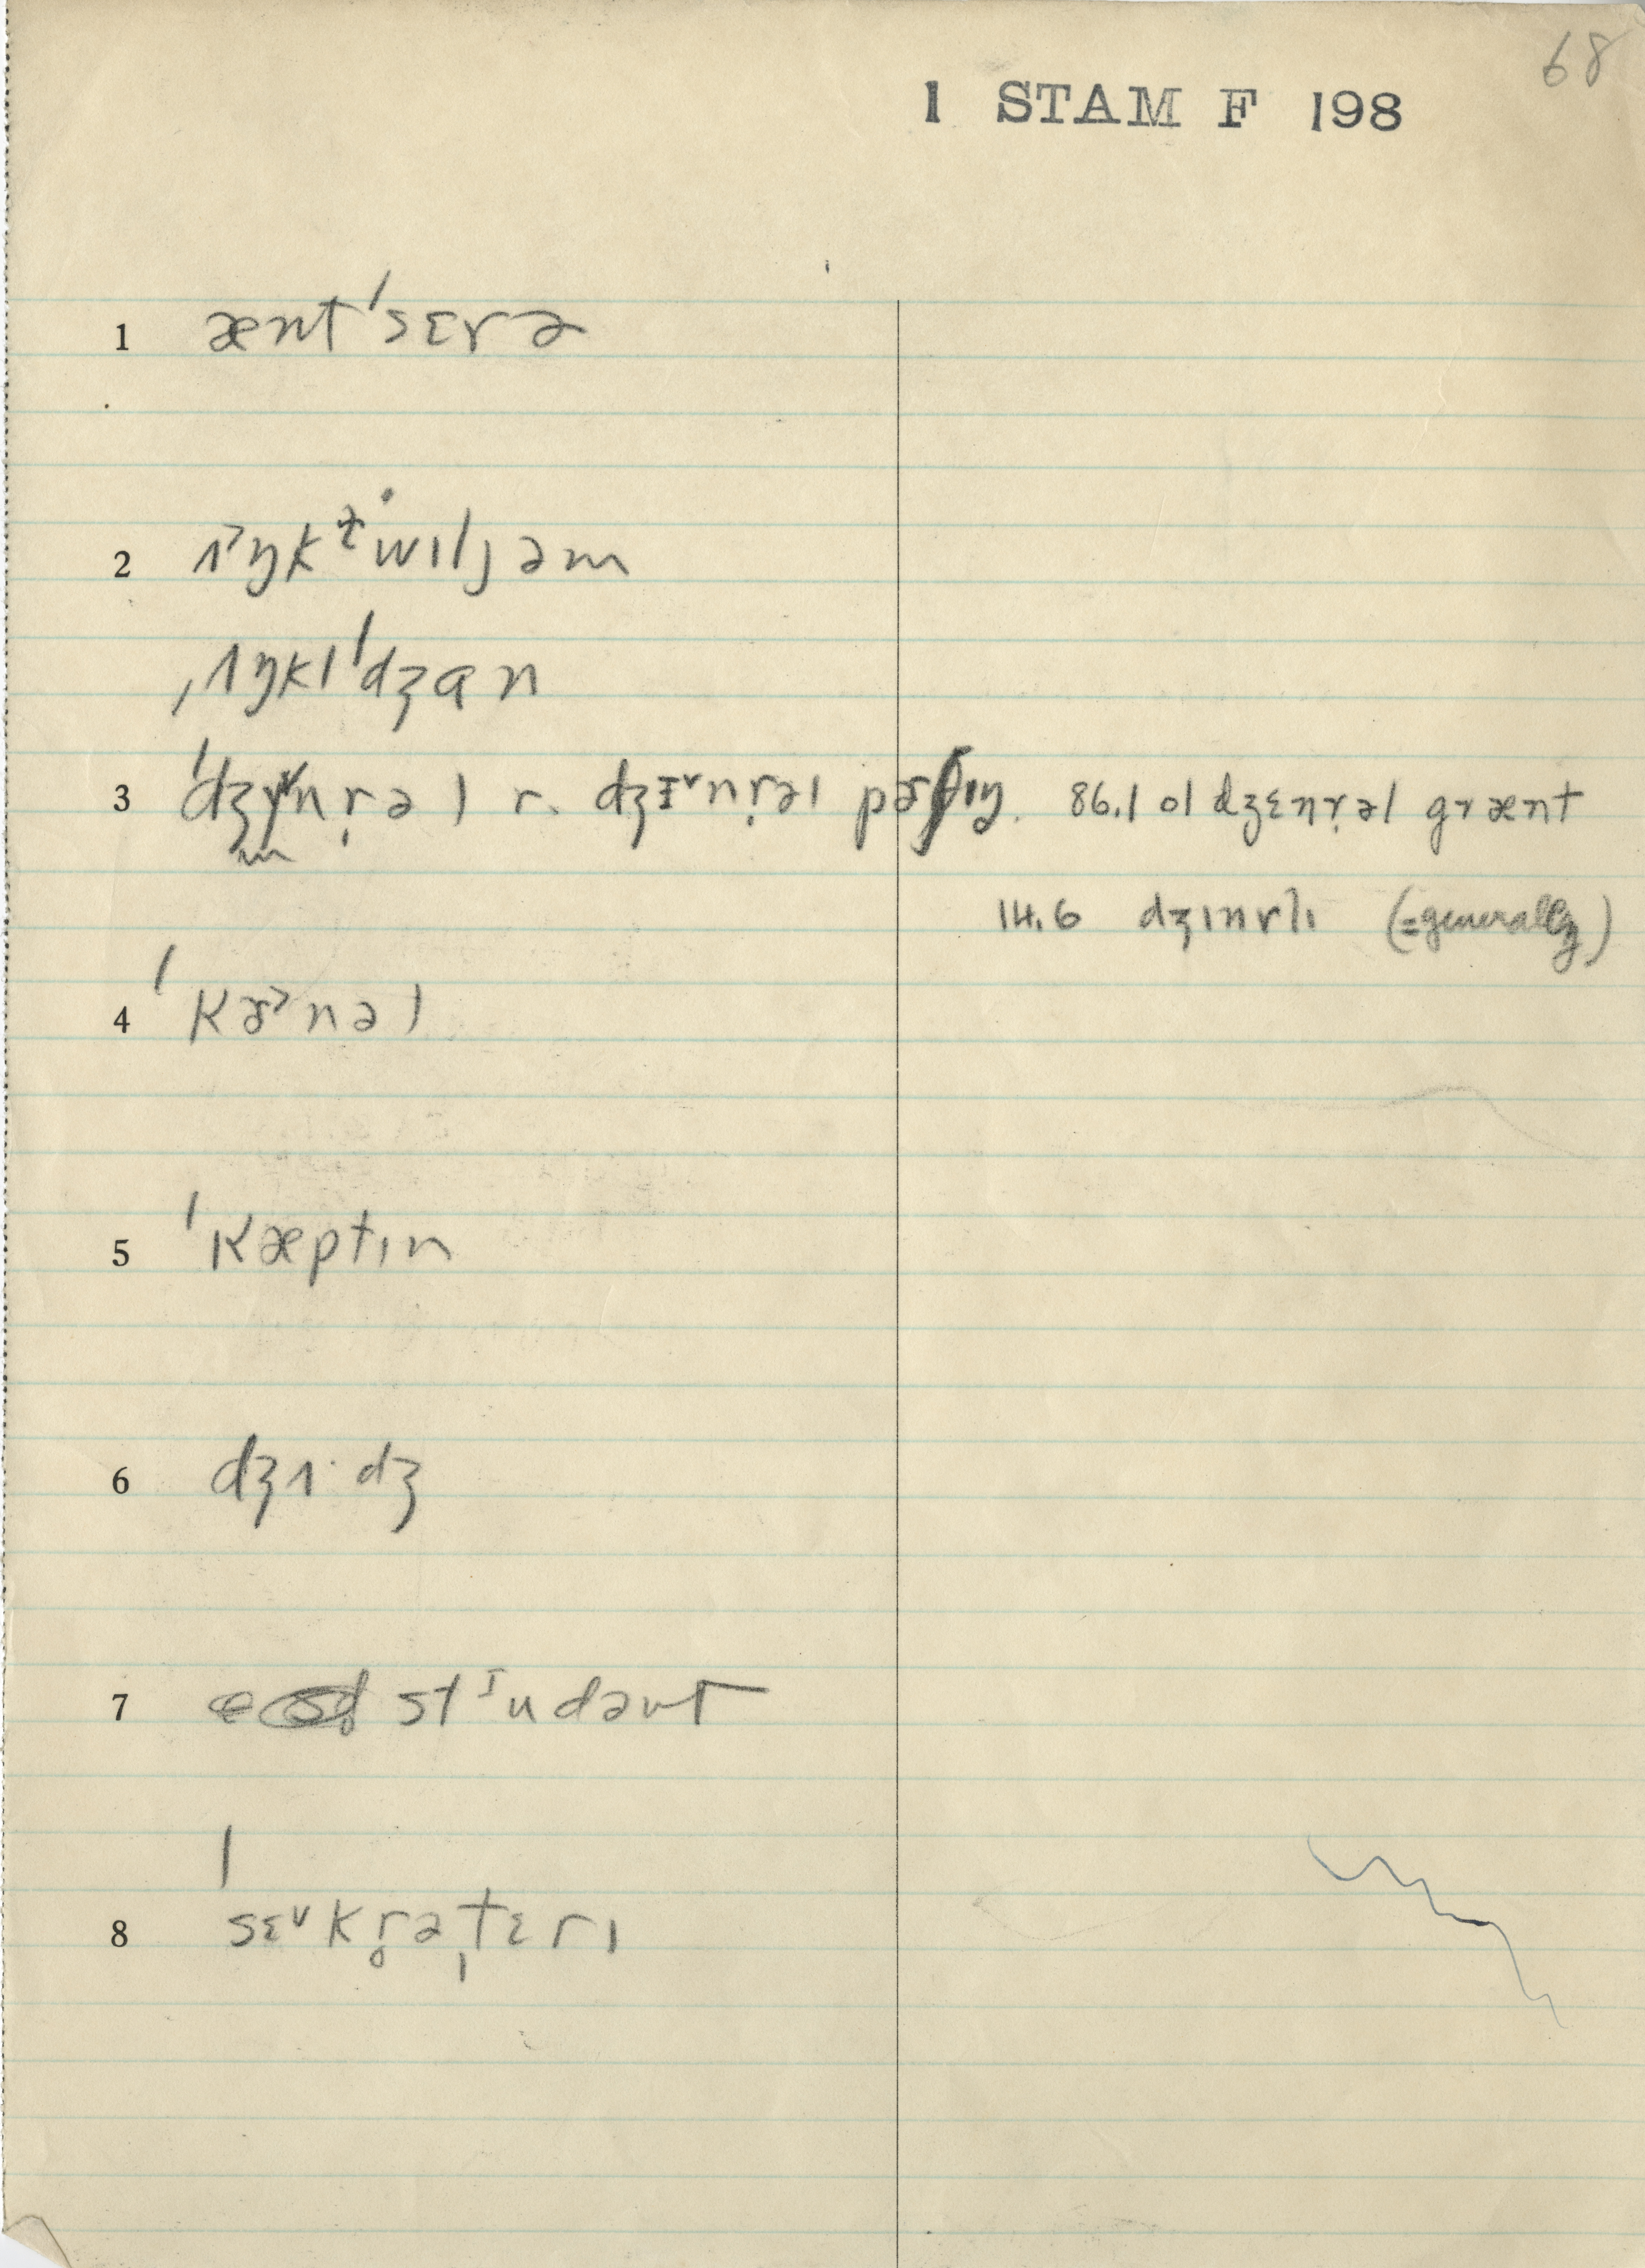 68
1 STAM F 198
1 æntˈsɛrə
2 ʌ˃ŋkɫ̩ˈwɪljəm
ˌʌŋklˈdʒɑn
3 r. dʒɪ˅nr̩əl 86.1 ol dʒɛnr̩əl grænt
14.6 dʒɪnrlɪ (=generally)
4 ˈkɝ˃nəl
5 ˈkæptɪn
6 dʒʌ·dʒ
7 stᶦudənt
8 ˈsɛ˅kr̥əˌtɛrɪ